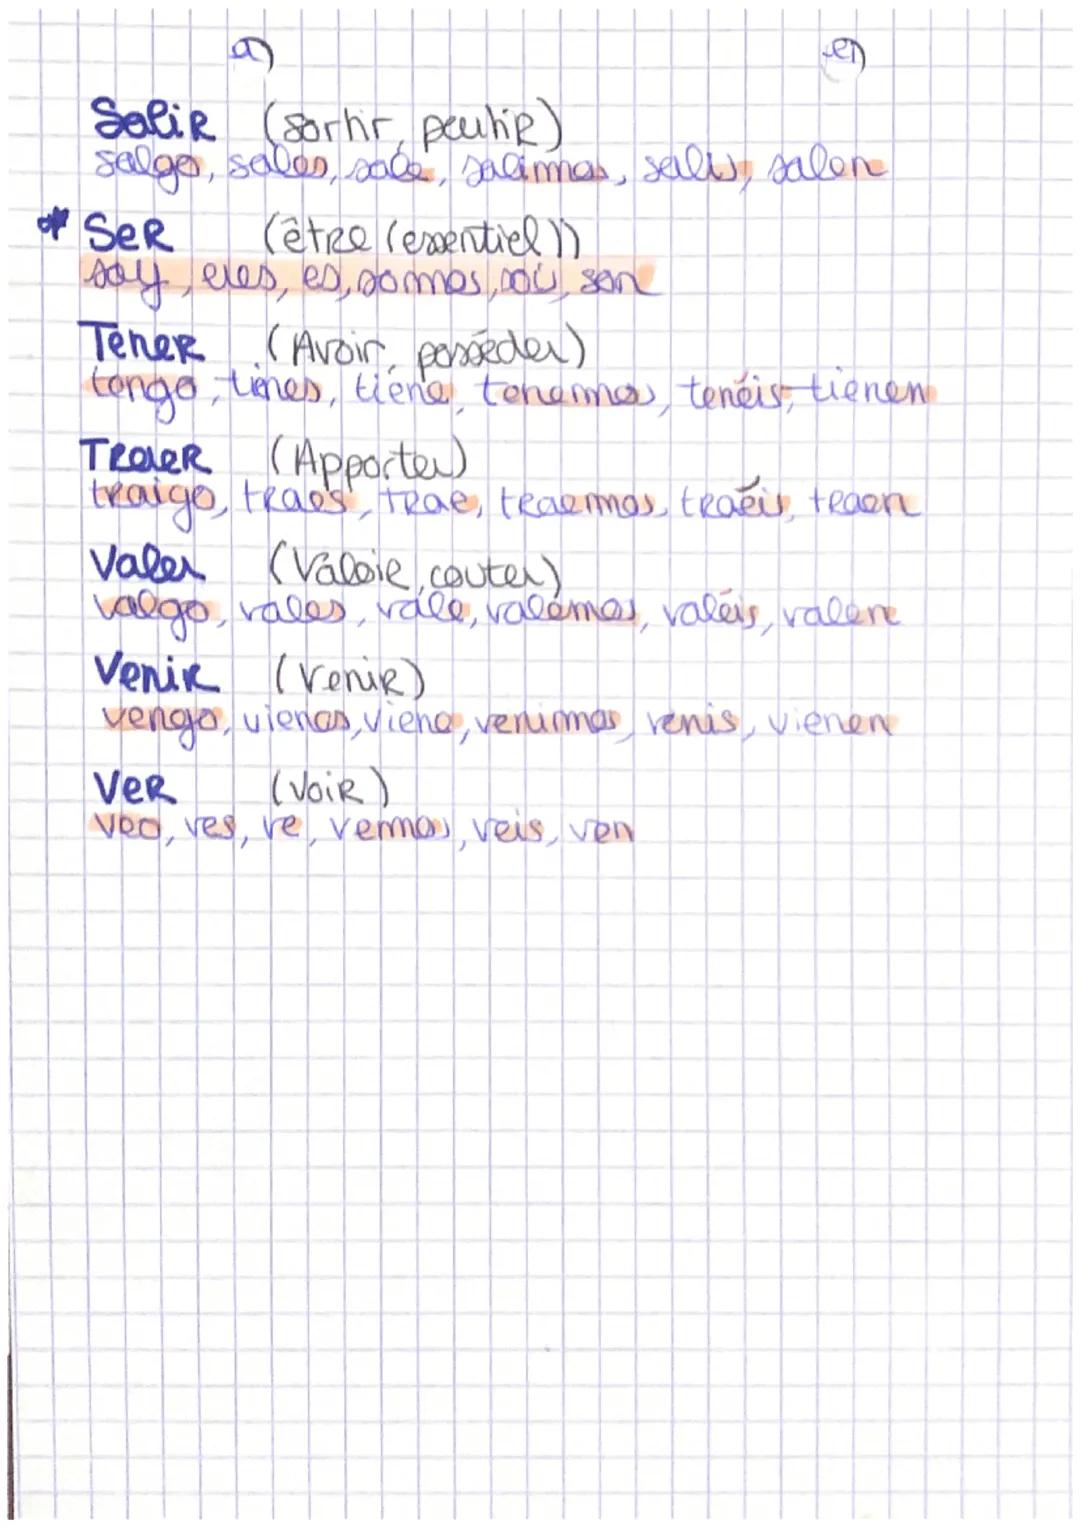 a) er)
Salir (sortir, partir)
salgo, sales, sale, salimos, salís, salen
* Ser (être (essentiel))
soy, eres, es, somos, sois, son
Tener (Avoir, posséder)
tengo, tienes, tiene, tenemos, tenéis, tienen
Traer (Apporter)
traigo, traes, trae, traemos, traéis, traen
Valer (Valoir, couter)
valgo, vales, vale, valemos, valéis, valen
Venir (Venir)
vengo, vienes, viene, venimos, venis, vienen
Ver (Voir)
veo, ves, ve, vemos, veis, ven